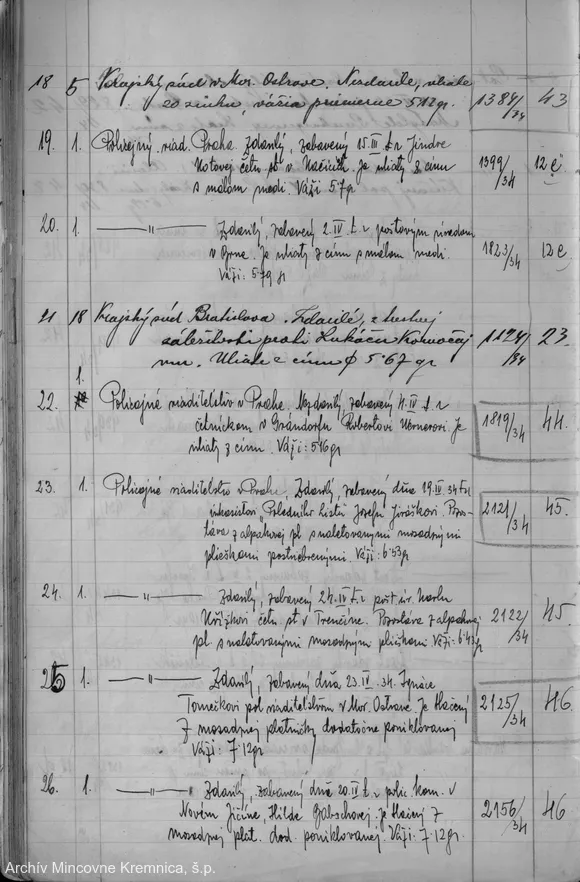 18 5 Krajský súd v Mor. Ostrave. Nezdarilé, uliate
zo zinku, vážia priemerne 5·12 gr. 1384/34 43
19. 1. Policajný riad. Praha. Zdarilý, zabavený 15. III. t. r. Jindre
četn. st. v Je uliaty z cínu 1399/34 12 c
s malom medi. Váži 5·7 gr
20. 1. —— " —— Zdarilý, zabavený 2. IV. t. r. poštovým úradom
v Brne. Je uliaty z cínu s malom medi. 1823/34 12 c
Váži: 5·79 gr
21 18 Krajský súd Bratislava. Zdarilé, z trestnej
záležitosti proti Lukáčovi 1124/34 23.
Uliate z cínu ϕ 5·67 gr
1.
22. Policajné riaditeľstvo v Prahe. Nezdarilý, zabavený 4. IV. t. r.
v Robertovi Wernerovi. Je 1819/34 44.
uliaty z cínu. Váži: 5·16 gr
23. 1. Policajné riaditeľstvo v Prahe, Zdarilý, zabavený dňa 19. IV. 34
inkasistovi „Poledního listu Josefu Jiráškovi. Pozo- 2121/34 45.
stáva z alpakovej pl. s naletovanými mosadznými
plieškami postriebrenými. Váži: 6·53 gr
24. 1. —— " —— Zdarilý, zabavený 24. IV. t. r. pošt. úr. Karlu
četn. st. v Trenčíne. Pozostáva z alpakovej 2122/34 45.
pl. s naletovanými mosadznými plieškami. Váži: 6·43 gr
25 1. —— " —— Zdarilý, zabavený dňa 23. IV. 34. Ignáce
Tomečkovi pol. riaditeľstvom v Mor. Ostrave. Je tlačený 2125/34 46.
z mosadznej platničky dodatočne poniklovanej
Váži: 7·12 gr
26. 1. —— " —— Zdarilý, zabavený dňa 20. IV. t. r. polic. kom. v
Novém Jičíne, Hilde Gabschovej. Je tlačený z 2156/34 46
mosadznej plat. dod. poniklovanej. Váži: 7·12 gr.
Archív Mincovne Kremnica, š.p.